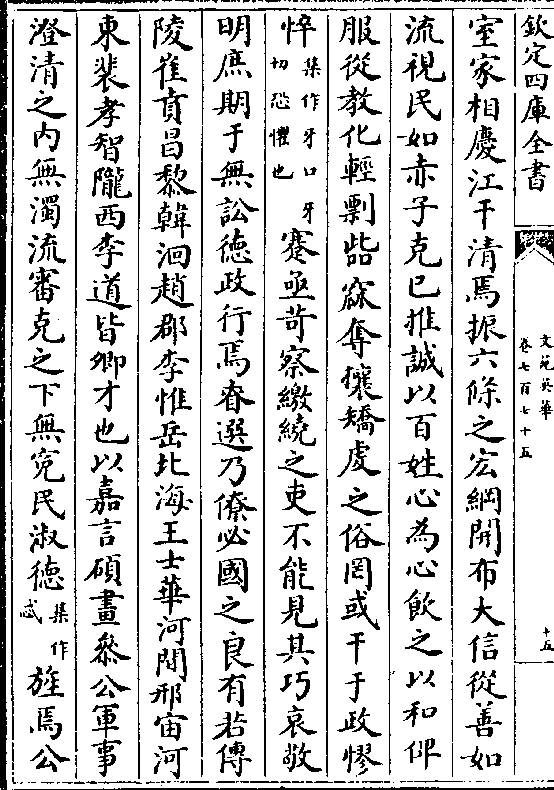 欽定四庫全書
文苑英華
卷七百七十五
十五
室家相慶江干清焉振六條之宏綱開布大信從善如
流視民如赤子克己推誠以百姓心為心飲之以和仰
服從教化輕剽啙窳奪攘矯虔之俗罔或干于政憀
悴集作牙口牙
切恐懼也蹇亟苛察繳繞之吏不能見其巧哀敬
明庶期于無訟德政行焉眘選乃僚必國之良有若傅
陵崔賁昌黎韓洄趙郡李惟岳北海王士華河間邢宙河
東裴孝智隴西李道皆卿才也以嘉言碩畫叅公軍事
澄清之內無濁流審克之下無寃民淑德集作
忒旌焉公